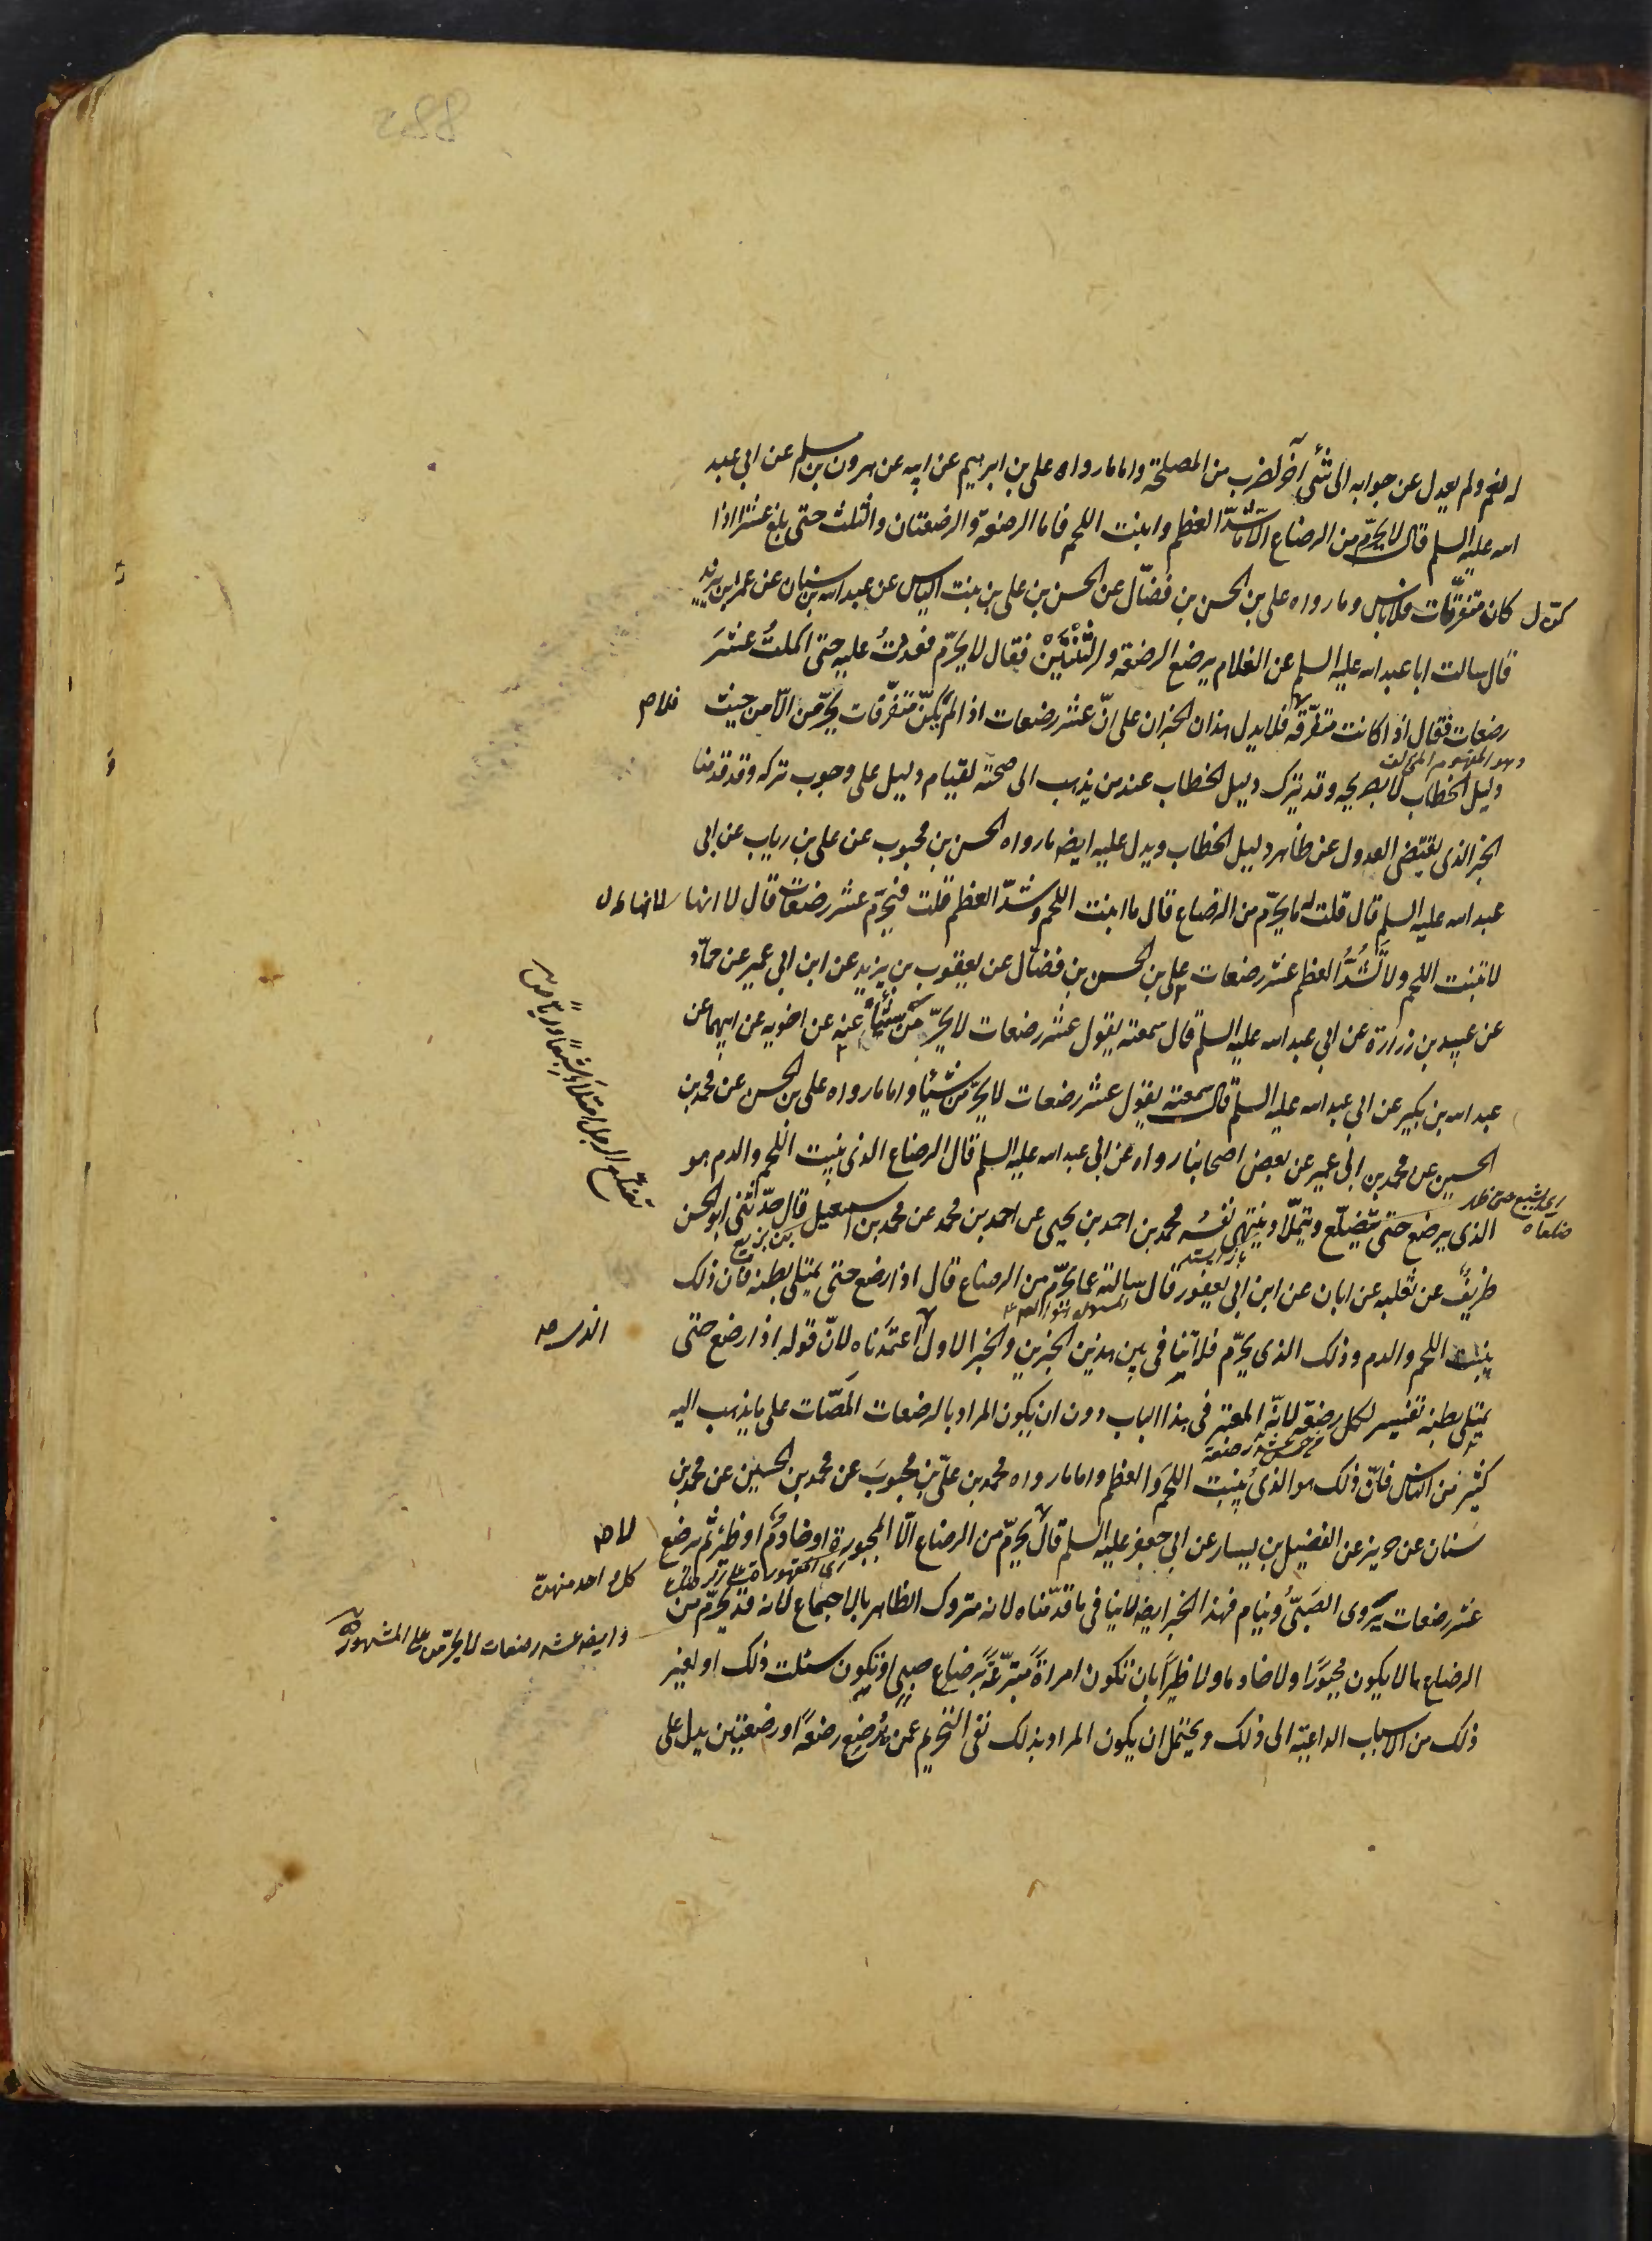 له نعم ولم يعدل عن جوابه الى شئ آخر لضرب من المصلحة واما ما رواه على بن ابرهيم عن ابيه عن هرون بن مسلم عن ابى عبد
الله عليه السلم قال لا يحرّم من الرضاع الّا ما شدّ العظم وانبت اللحم فاما الرضعة والرضعتان والثلث حتى بلغ عشرا اذا
كان متفرّقات فلا باس وما رواه على بن الحسن بن فضّال عن الحسن بن على بن بنت الياس عن عبد الله بن سنان عن عمر بن يزيد
قال سالت ابا عبد الله عليه السلم عن الغلام يرضع الرضعة والثنتين فقال لا يحرّم فعددتُ عليه حتى اكملتُ عشرَ
رضعات فقال اذا كانت متفرّقة فلا يدل هذان الخبران على انّ عشر رضعات اذا لم يكنّ متفرّقات يحرّمن الّا من حيث
وهو المفهوم المخالف
دليل الخطاب لا بصريحه وقد يترك دليل الخطاب عند من يذهب الى صحته لقيام دليل على وجوب تركه وقد قدمنا
الخبر الذى يقتضى العدول عن ظاهر دليل الخطاب ويدل عليه ايضا ما رواه الحسن بن محبوب عن على بن رياب عن ابى
عبد الله عليه السلم قال قلت له ما يحرّم من الرضاع قال ما انبت اللحم وشدّ العظم قلت فيحرّم عشر رضعات قال لا انها
لا تنبت اللحم ولا تَشُدُّ العظم عشر رضعات على بن الحسن بن فضّال عن يعقوب بن يزيد عن ابن ابى عمير عن حمّاد
عن عبيد بن زرارة عن ابى عبد الله عليه السلم قال سمعته يقول عشر رضعات لا يحرّمن شيئًا عنه عن اخويه عن ابيهما عن
عبد الله بن بكير عن ابى عبد الله عليه السلم قال سمعته يقول عشر رضعات لا يحرّمن شيئا واما ما رواه على بن الحسن عن محمد بن
الحسين عن محمد بن ابى عمير عن بعض اصحابنا رواه عن ابى عبد الله عليه السلم قال الرضاع الذى ينبت اللحم والدم هو
الذى يرضع حتى يتضلّع ويتملّا وينتهى نفسُه محمد بن احمد بن يحيى عن احمد بن محمد عن محمد بن اسمعيل قال حدّثنى ابو الحسن
بن بزيع
ظريف عن ثعلبه عن ابان عن ابن ابى يعفور قال سالته عما يحرّم من الرضاع قال اذا رضع حتى يمتلى بطنه فان ذلك
ينبت اللحم والدم وذلك الذى يحرّم فلا تنافى بين هذين الخبرين والخبر الاول اعتمدناه لانّ قوله اذا رضع حتى
يمتلى بطنه تفسير لكل رضعة لانّه المعتبر فى هذا الباب دون ان يكون المراد بالرضعات المصّات على ما يذهب اليه
خمس عشرة رضعة
كثير من الناس فانّ ذلك هو الذى يُنبت اللحمَ والعظم واما ما رواه محمد بن علىّ بن محبوبَ عن محمد بن الحسين عن محمد بن
سنان عن حريز عن الفضيل بن يسار عن ابى جعفر عليه السلم قال لا يحرّم من الرضاع الّا المجبورة او خادمٌ او ظئر ثم يرضع
عشر رضعات يَروى الصَبىُّ وينام فهذا الخبر ايضا لا ينافى ما قدّمناه لانه متروك الظاهر بالاجماع لانه قد يحرّم من
وايضا عشر رضعات لا يحرّمن على المشهور
الرضاع ما لا يكون مجبورًا ولا خادما ولا ظئراً بان تكون امراةً متبرّعةً برضاع صبىّ او تكون سئلت ذلك او لغير
ذلك من الاسباب الداعية الى ذلك ويحتمل ان يكون المراد بذلك نفى التحريم عمن يُرضِع رضعةً او رضعتين يدل على